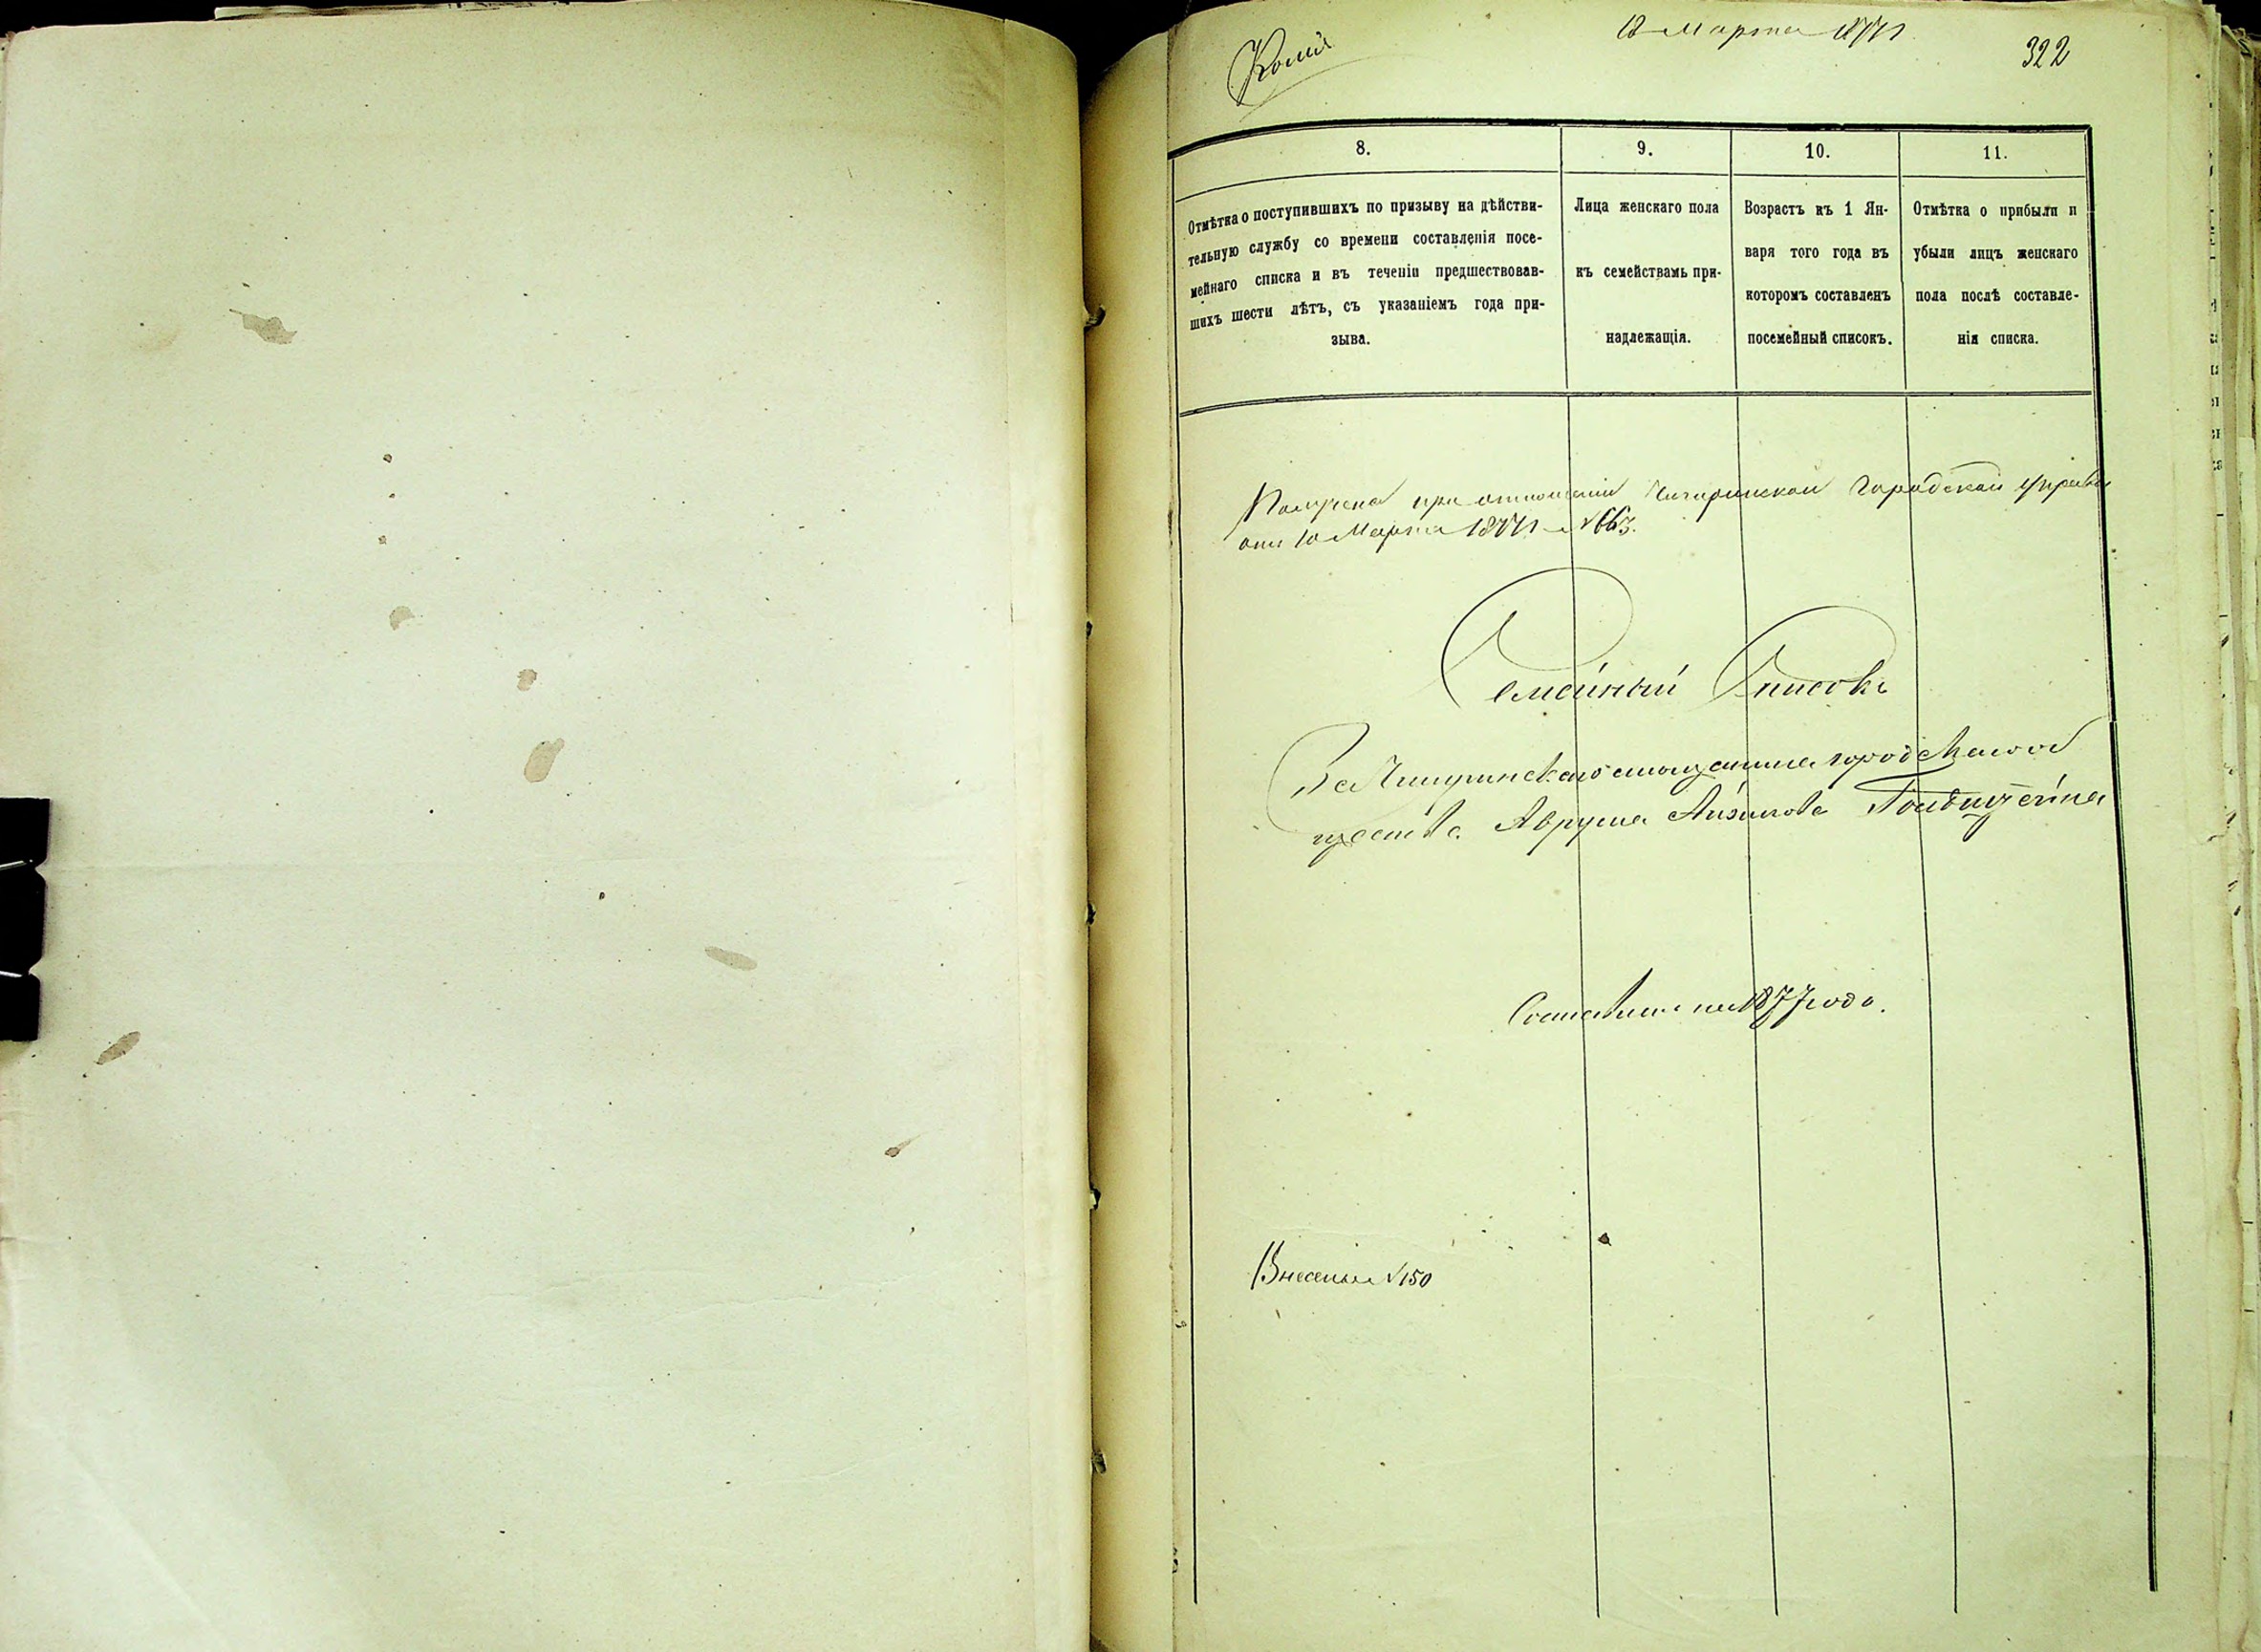 Копія
12 Марта 1877 г.
322
8.
Отмѣтка о поступившихъ по призыву на дѣйстви-
тельную службу со времени составленія посе-
мейнаго списка и въ теченіи предшествовав-
шихъ шести лѣтъ, съ указаніемъ года при-
зыва.
9.
Лица женскаго пола
къ семействамъ при-
надлежащія.
10.
Возрастъ къ 1 Ян-
варя того года въ
которомъ составленъ
посемейный списокъ.
11.
Отмѣтка о прибыли и
убыли лицъ женскаго
пола послѣ составле-
нія списка.
Получена при отношеніи Чигиринской Городской управы
отъ 10 Марта 1877 г. № 663.
Семейный Списокъ
Чигиринскаго городскаго
Аврума Айзикова
1877 года.
Внесены № 150